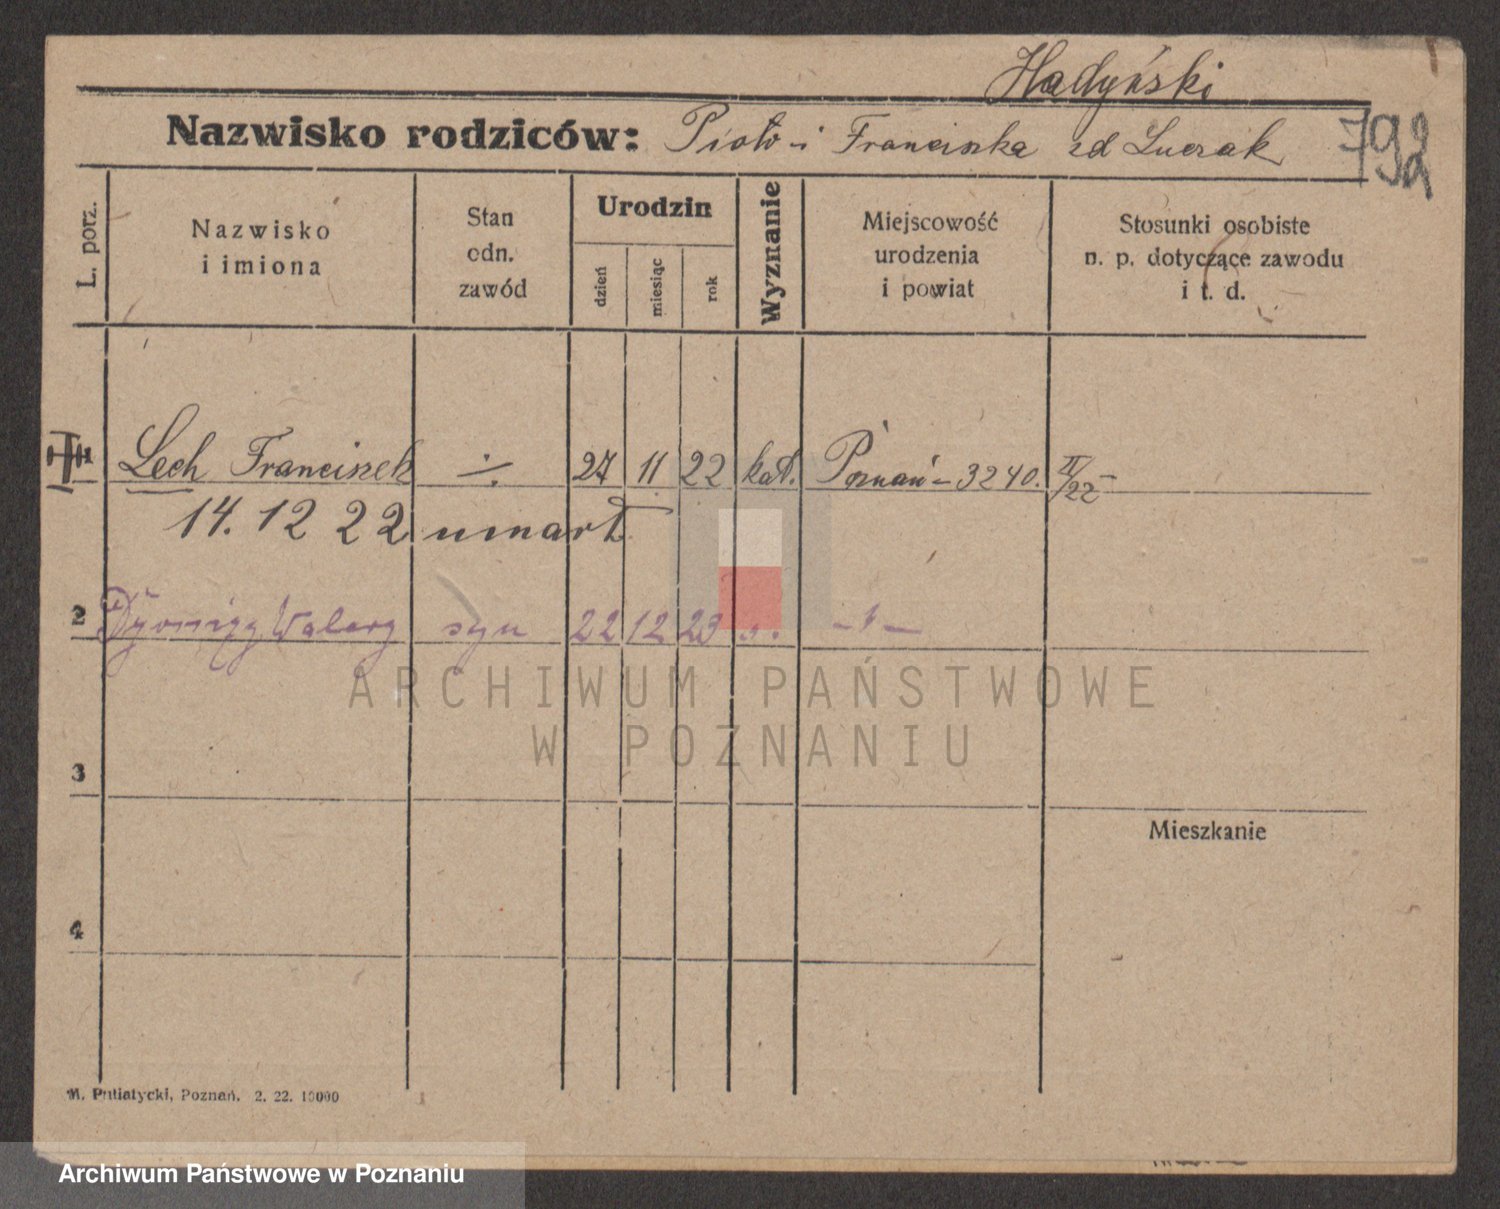 Hadyński
Nazwisko rodziców: Piotr i Franciszka zd Luczak
792
L. porz.
Nazwisko
i imiona
Stan
odn.
zawód
Urodzin
dzień
miesiąc
rok
Wyznanie
Miejscowość
urodzenia
i powiat
Stosunki osobiste
n. p. dotyczące zawodu
i t. d.
1 Lech Franciszek ÷ 27 11 22 kat. Poznań - 3240. II/22 -
14. 12 22 umarł
2 Dyonizy Walery syn 22 12 23 " -"-
ARCHIWUM PAŃSTWOWE
W POZNANIU
3
Mieszkanie
4
M. Putiatycki, Poznań. 2. 22. 10000
Archiwum Państwowe w Poznaniu